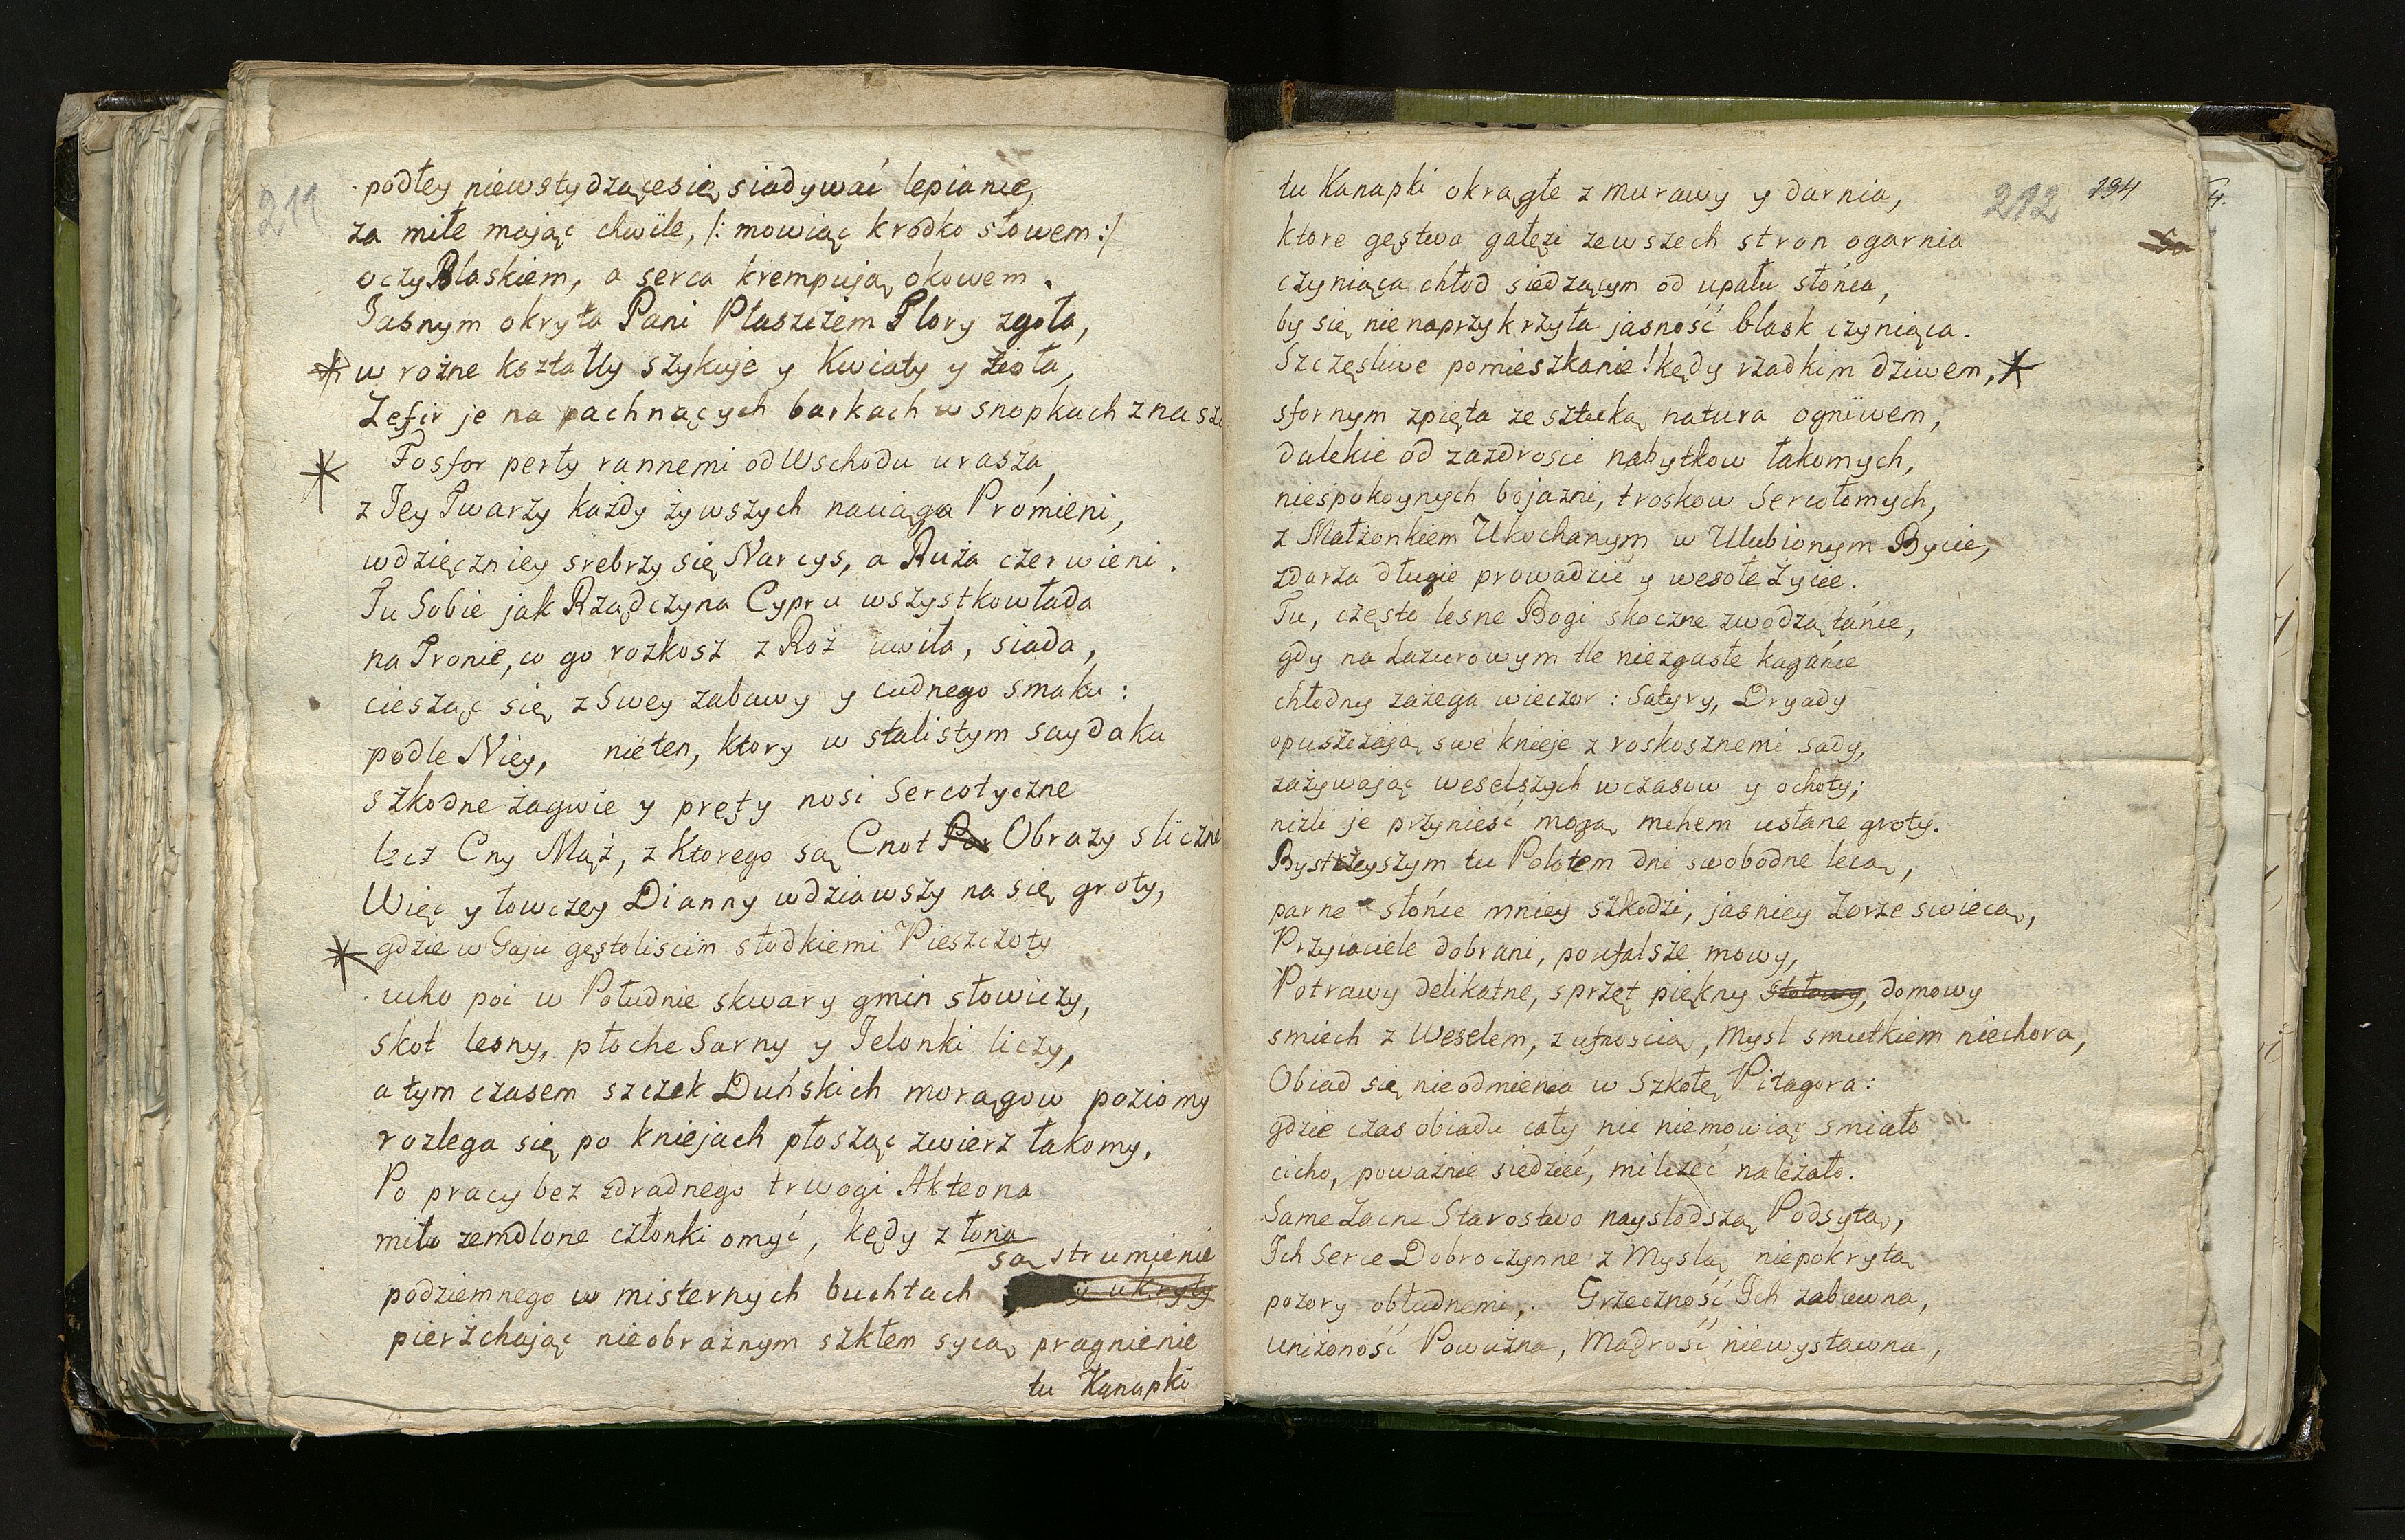 211
podłey niewstydzącesię siadywać lepianie,
za miłe mając chwile, /: mowiąc krodko słowem :/
oczy Blaskiem, a serca krempują okowem.
Jasnym okryta Pani Płaszczem Flory zgoła,
* w rożne kształty szykuje y Kwiaty y żioła,
Zefir je na pachnących barkach w snopkach znasz
* Fosfor perły rannemi od Wschodu urasza,
z Jey Twarzy każdy żywszych naciąga Promieni,
wdzięczniey srebrzy się Narcys, a Ruża czerwieni.
Tu Sobie jak Rządczyna Cypru wszystkowłada
na Tronie, co go rozkosz z Roż uwiła, siada,
ciesząc się z Swey zabawy y cudnego smaku:
podle Niey, nieten, ktory w stalistym saydaku
szkodne żagwie y pręty nosi Sercotyczne
lecz Cny Mąż, z Ktorego są Cnot Por Obrazy sliczne
Więc y łowczey Dianny wdziawszy na się groty,
* gdzie w Gaju gęstoliscim słodkiemi Pieszczoty
ucho poi w Południe skwary gmin słowiczy,
skot lesny, płoche Sarny y Jelonki liczy,
a tym czasem szczek Duńskich morągow poziomy
rozlega się po kniejach płosząc zwierz łakomy.
Po pracy bez zdradnego trwogi Akteona
miło zemdlone członki omyć, kędy z łona
są strumienie
podziemnego w misternych buchtach y ukryty
pierzchając nieobrażnym szkłem sycą pragnienie
tu Kanapki
212 194
tu Kanapki okrągłe z murawy y darnia,
ktore gęstwa gałęzi zewszech stron ogarnia
czyniąca chłod siedzącym od upału słońca,
by się nienaprzykrzyła jasność blask czyniąca.
Szczęsliwe pomieszkanie! kędy rzadkim dziwem, *
sfornym zpięta ze sztuką natura ogniwem,
dalekie od zazdrosci nabytkow łakomych,
niespokoynych bojazni, troskow Sercołomych,
z Małżonkiem Ukochanym w Ulubionym Bycie,
zdarza długie prowadzić y wesołe życie.
Tu, często lesne Bogi skoczne zwodzą tańce,
gdy na Lazurowym tle niezgasłe kagańce
chłodny zażega wieczor: Satyry, Dryady
opuszczają swe knieje z roskosznemi sady,
zażywając weselszych wczasow y ochoty;
niżli je przynieść mogą mchem usłane groty.
Bystrzeyszym tu Polotem dni swobodne lecą,
parne słońce mniey szkodzi, jasniey Zorze swiecą,
Przyiaciele dobrani, poufalsze mowy,
Potrawy delikatne, sprzęt piękny stołowy, domowy
smiech z Weselem, z ufnoscią, Mysl smutkiem niechora,
Obiad się nieodmienia w Szkołę Pitagora:
gdzie czas obiadu cały nic niemowiąc smiało
cicho, poważnie siedzieć, milczeć należało.
Same Zacne Starostwo naysłodszą Podsytą,
Ich Serce Dobroczynne z Myslą niepokrytą
pozory obłudnemi, Grzeczność Ich zabawna,
uniżoność Poważna, Mądrość niewystawna,